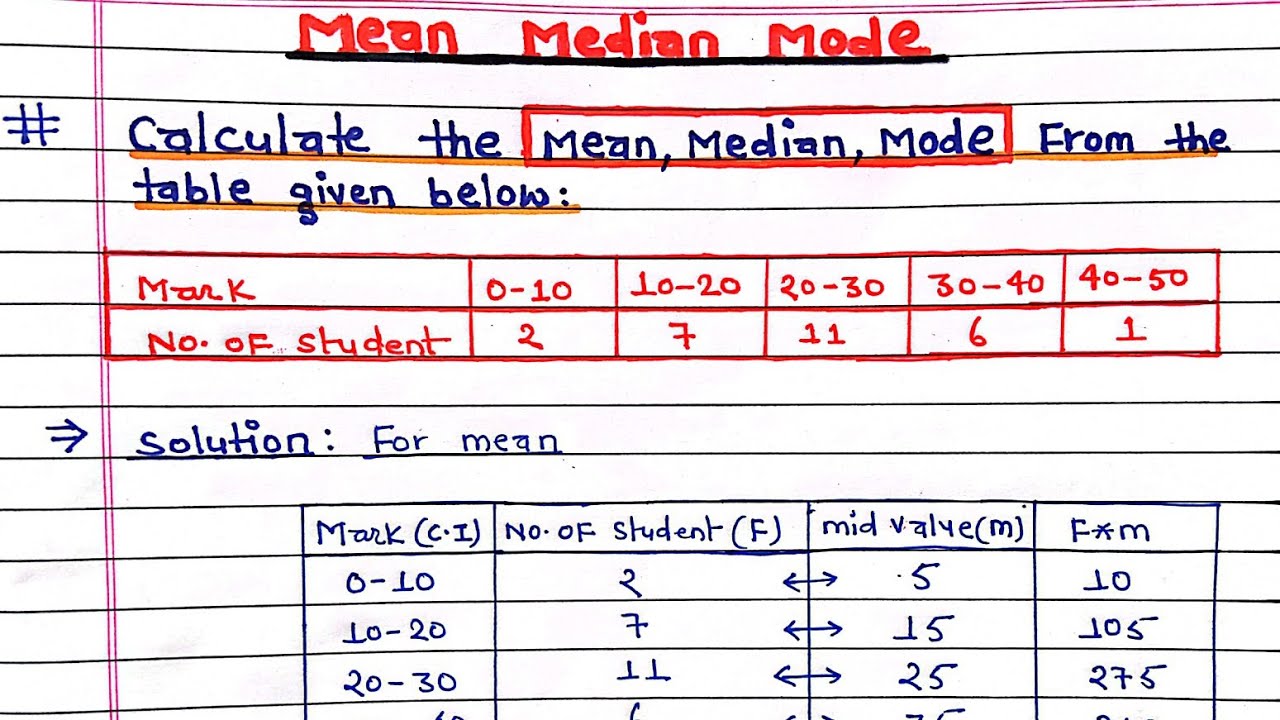 Mean Median Mode
# Calculate the Mean, Median, Mode From the
table given below:
Mark 0-10 10-20 20-30 30-40 40-50
No. OF Student 2 7 11 6 1
⇒ Solution: For mean
Mark (C.I) No. OF Student (F) mid value(m) F*m
0-10 2 ↔ 5 10
10-20 7 ↔ 15 105
20-30 11 ↔ 25 275